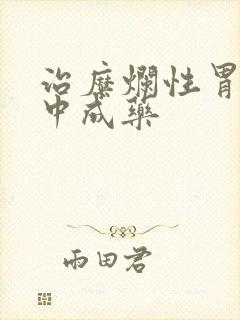 治糜爛性胃
中成藥
雨田君